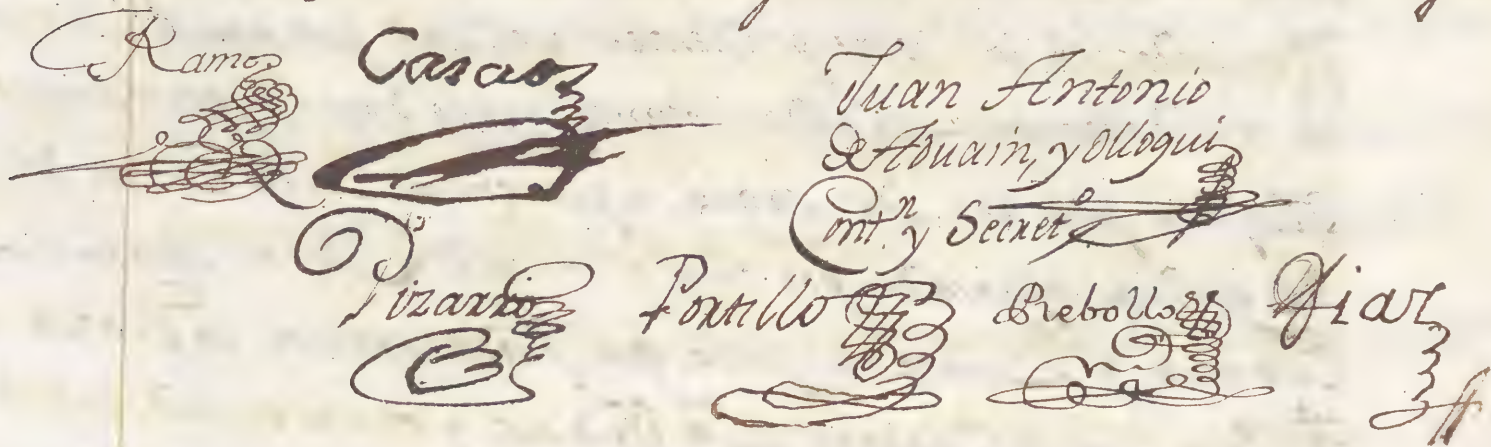 Ramos
Casaos
Juan Antonio
de Aouain, y Ollogui
Cont.n y Secret
Pizarro
Portillo
Rebollo
Diaz